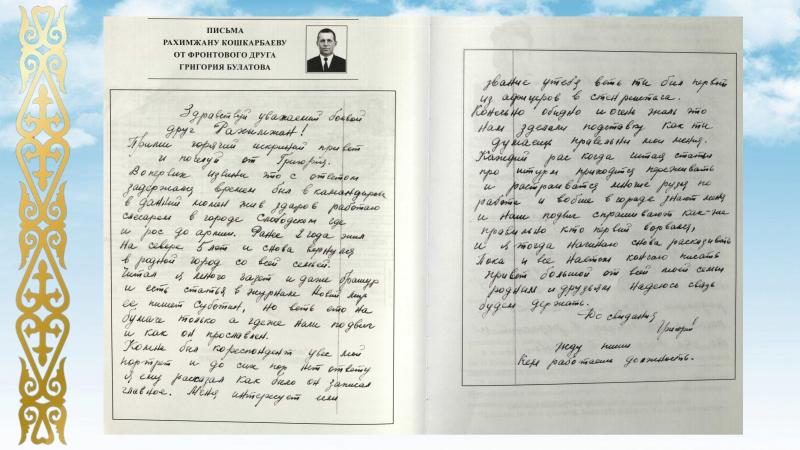 ПИСЬМА
РАХИМЖАНУ КОШКАРБАЕВУ
ОТ ФРОНТОВОГО ДРУГА
ГРИГОРИЯ БУЛАТОВА
Здравствуй уважаемый боевой
друг Рахимжан!
Прими горячий искрений привет
и поцелуй от Григория.
Вопервых извини что с ответом
задержался времен был в командировке
в данний момен жив здоров работаю
слесарем в городе Слободском где
и рос до армии. Ранее 2 года жил
На севере 5 лет и снова вернулся
в родной город со всей семьей.
Читал я много газет и даже брошур
и есть статья в журнале Новый мир
её пишет Суботин, но веть это на
бумаге только а где же наш подвиг
и как он прославлен.
Комне был кореспондент увез мой
портрет и до сих пор нет ответу
я ему рассказал как было он записал
главное. Меня интересует
звание у тебя веть ти был первый
из афицеров в стен рейхстага.
Конешно обидно и очень жаль что
нам зделали подставку как ти
думаеш правельни мои мения.
Каждий рас когда читаю статьи
про штурм приходится переживать
и растраиватся многие друзя по
работе и вобше в городе знают меня
и наш подвиг спрашивают как-же
правильно кто первый ворвался,
и я тогда начинаю снова рассказивать
Пока и все Настом кончаю писать
привет большой от всей моей семьи
родним и друзьям надеюс связь
будем держать.
До свидания
Григорий
Жду пиши
Кем работаеш должность.